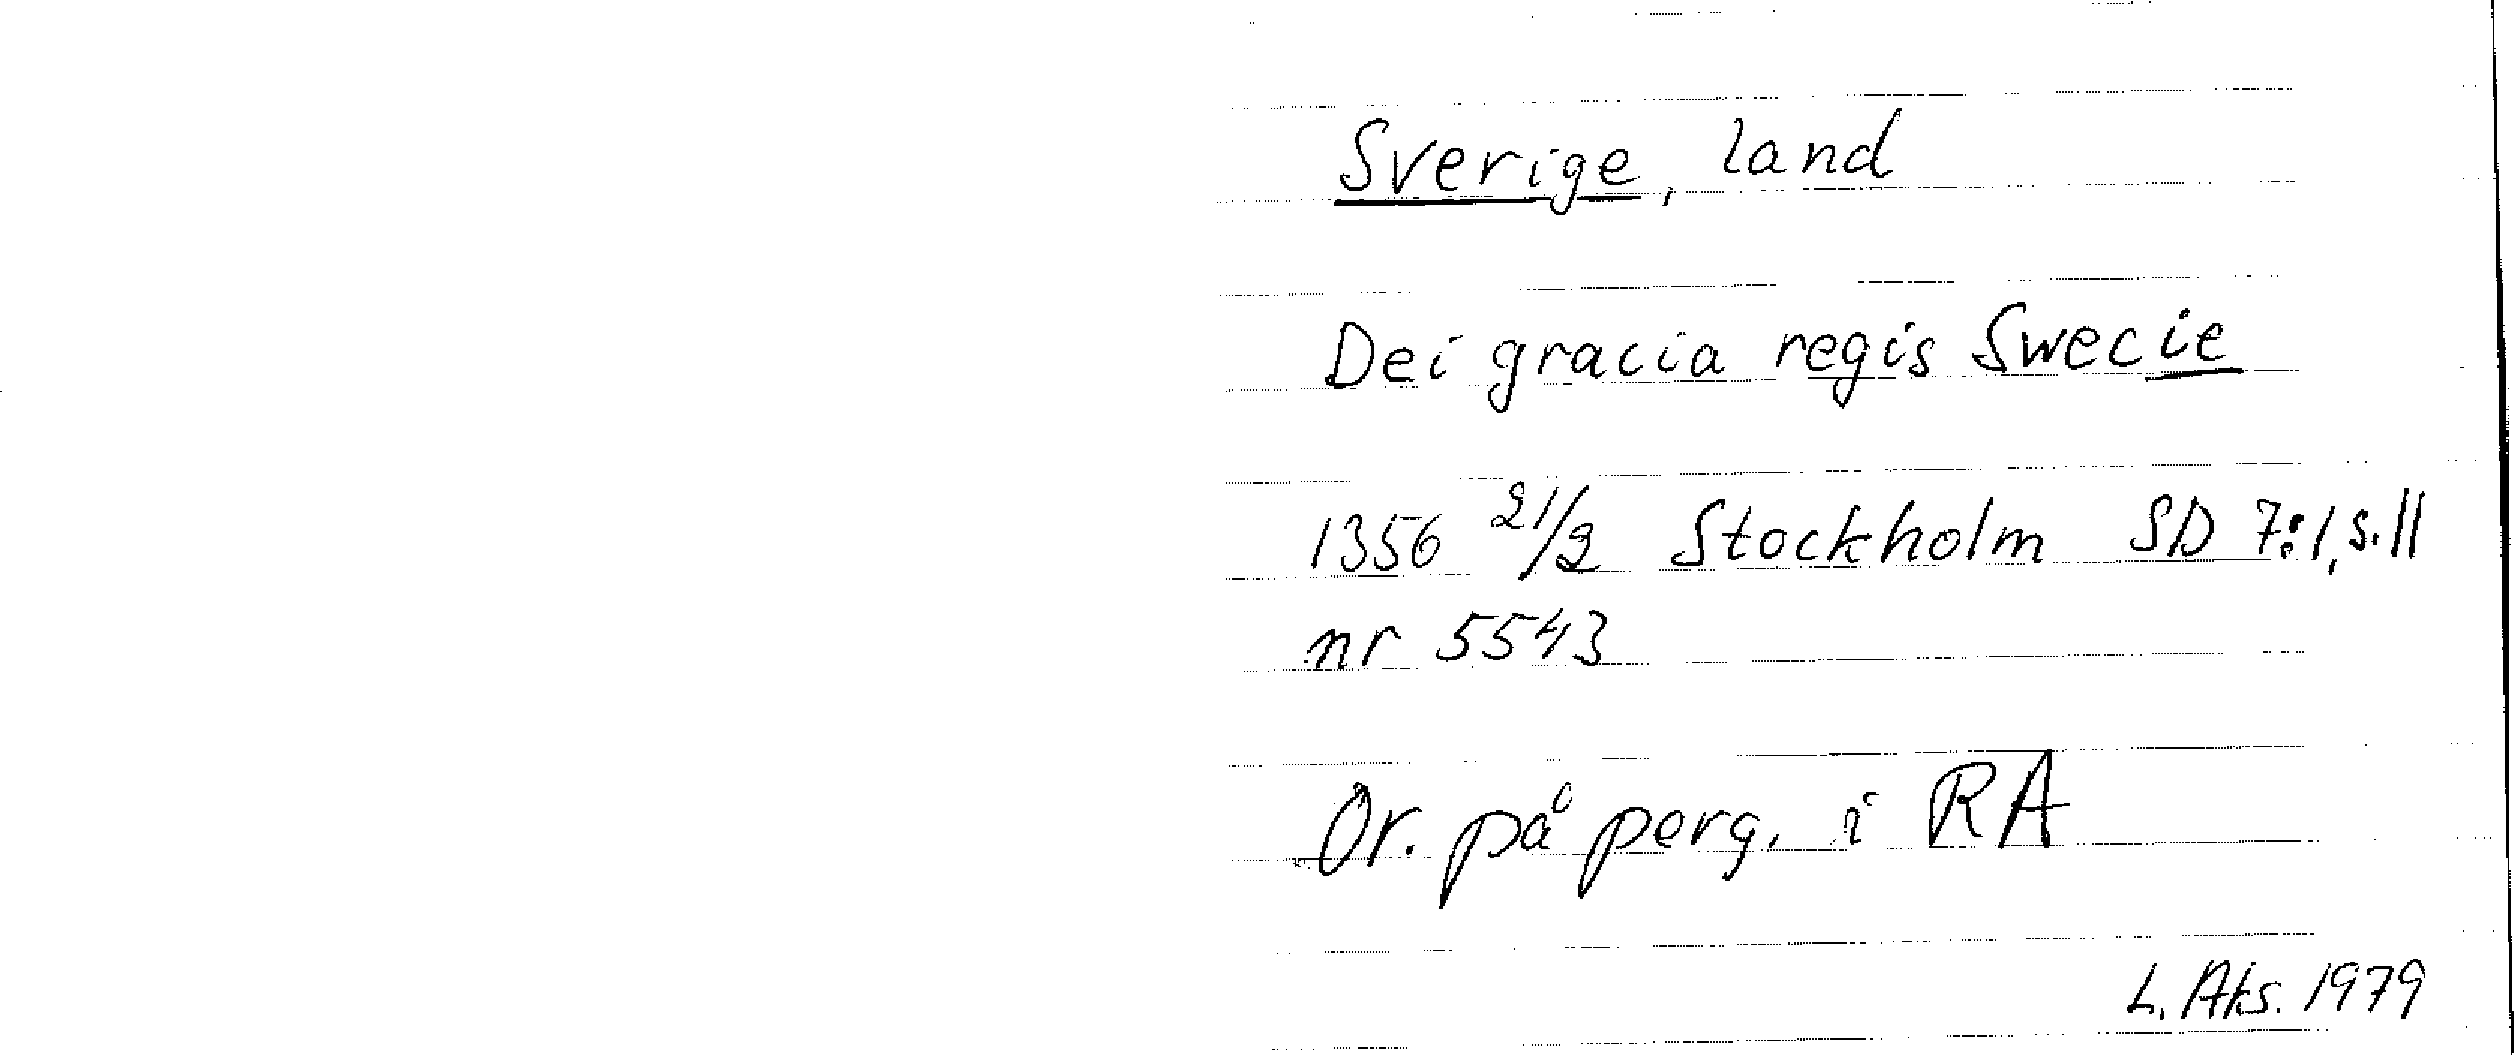 Sverige, land
Dei gracia regis Swecie
1356 21/2 Stockholm SD 7:1, s. 11
nr 5543
Or. på perg. i RA
L. Aks. 1979